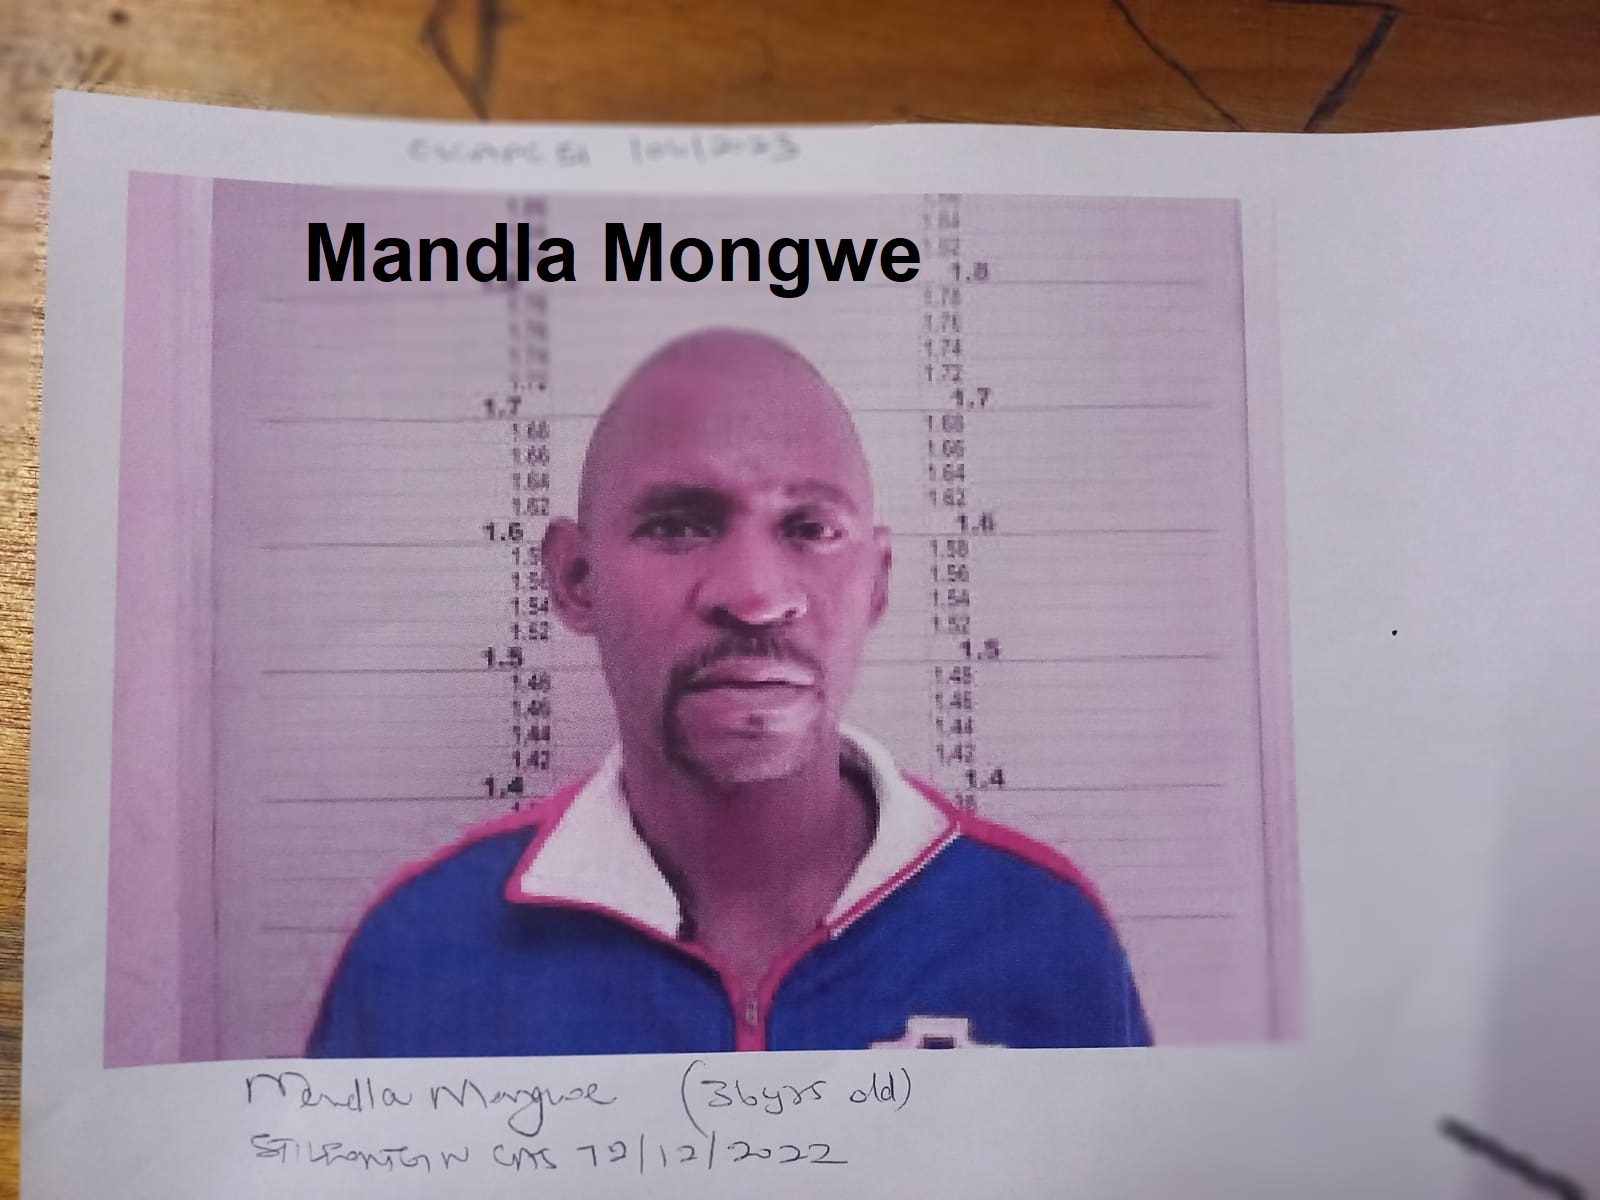 /04/2023
Mandla Mongwe
1.8
1.78
1.76
1.74
1.72
1.7 1.7
1.68 1.68
1.66 1.66
1.64 1.64
1.62 1.62
1.6 1.6
1.58
1.56
1.54 1.54
1.52 1.52
1.5 1.5
1.48 1.48
1.46 1.46
1.44 1.44
1.42 1.42
1.4 1.4
Mandla Mongwe (36yrs old)
STILFONTEIN CAS 72/12/2022